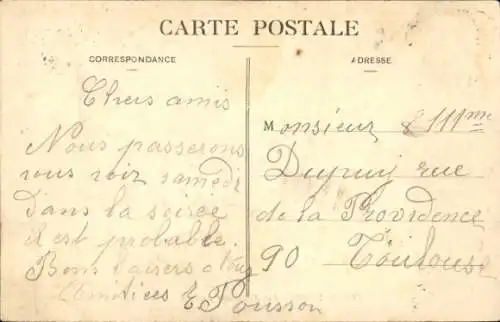 CARTE POSTALE
CORRESPONDANCE
Chers amis
Nous passerons
vous voir samedi
dans la soirée
il est probable.
Bons baisers a Vous
Amitiées E Pousson
ADRESSE
Monsieur & Mme
Dupuy rue
de la Providence
90 Toulouse